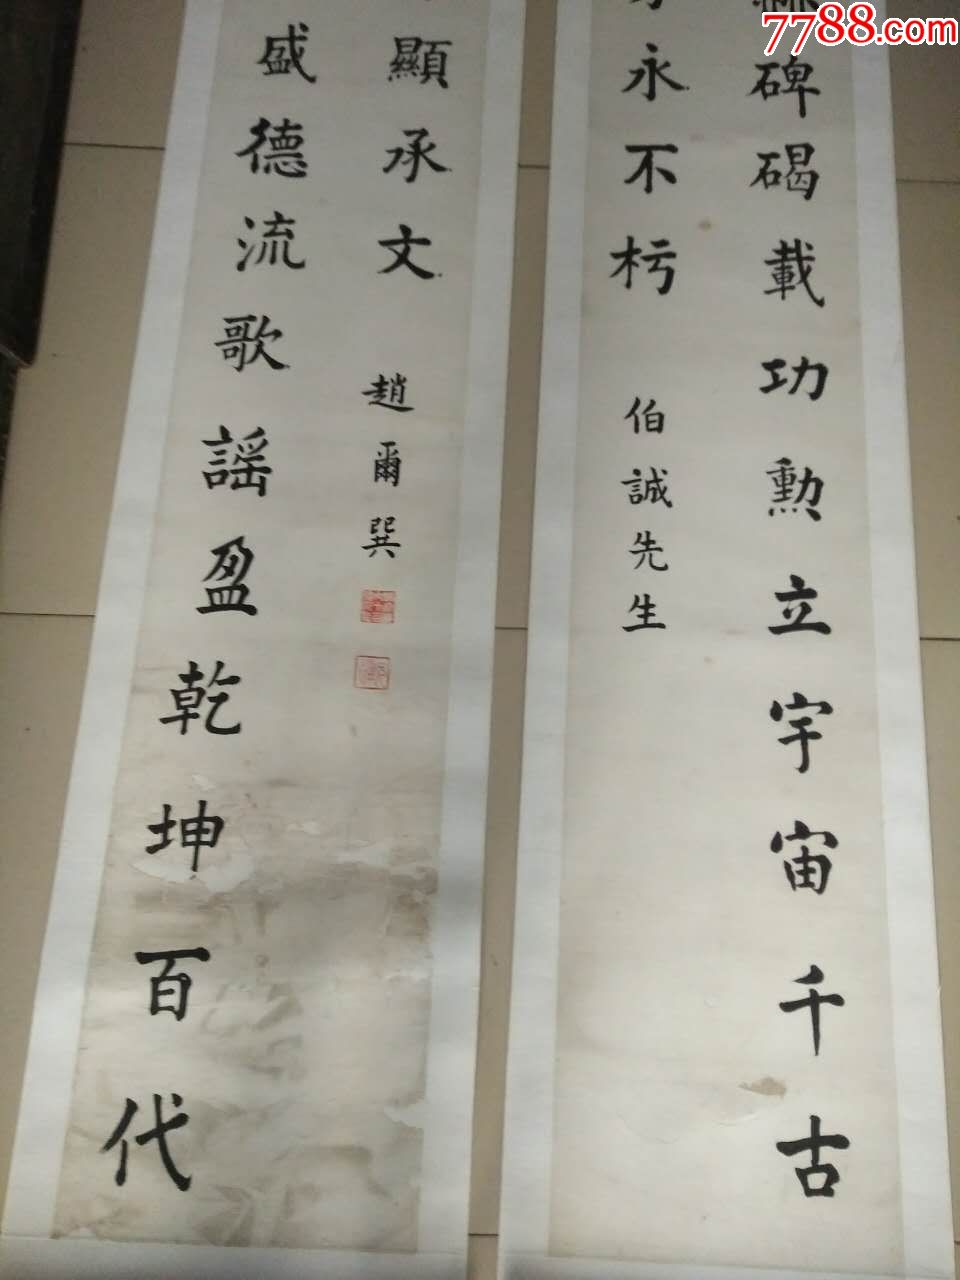 7788.com
碑碣載功勲立宇宙千古
永不朽
伯誠先生
盛德流歌謡盈乾坤百代
顯承文
趙爾巽